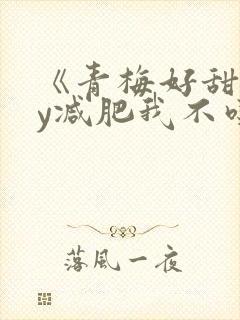 《青梅好甜
y减肥我不
落風一夜